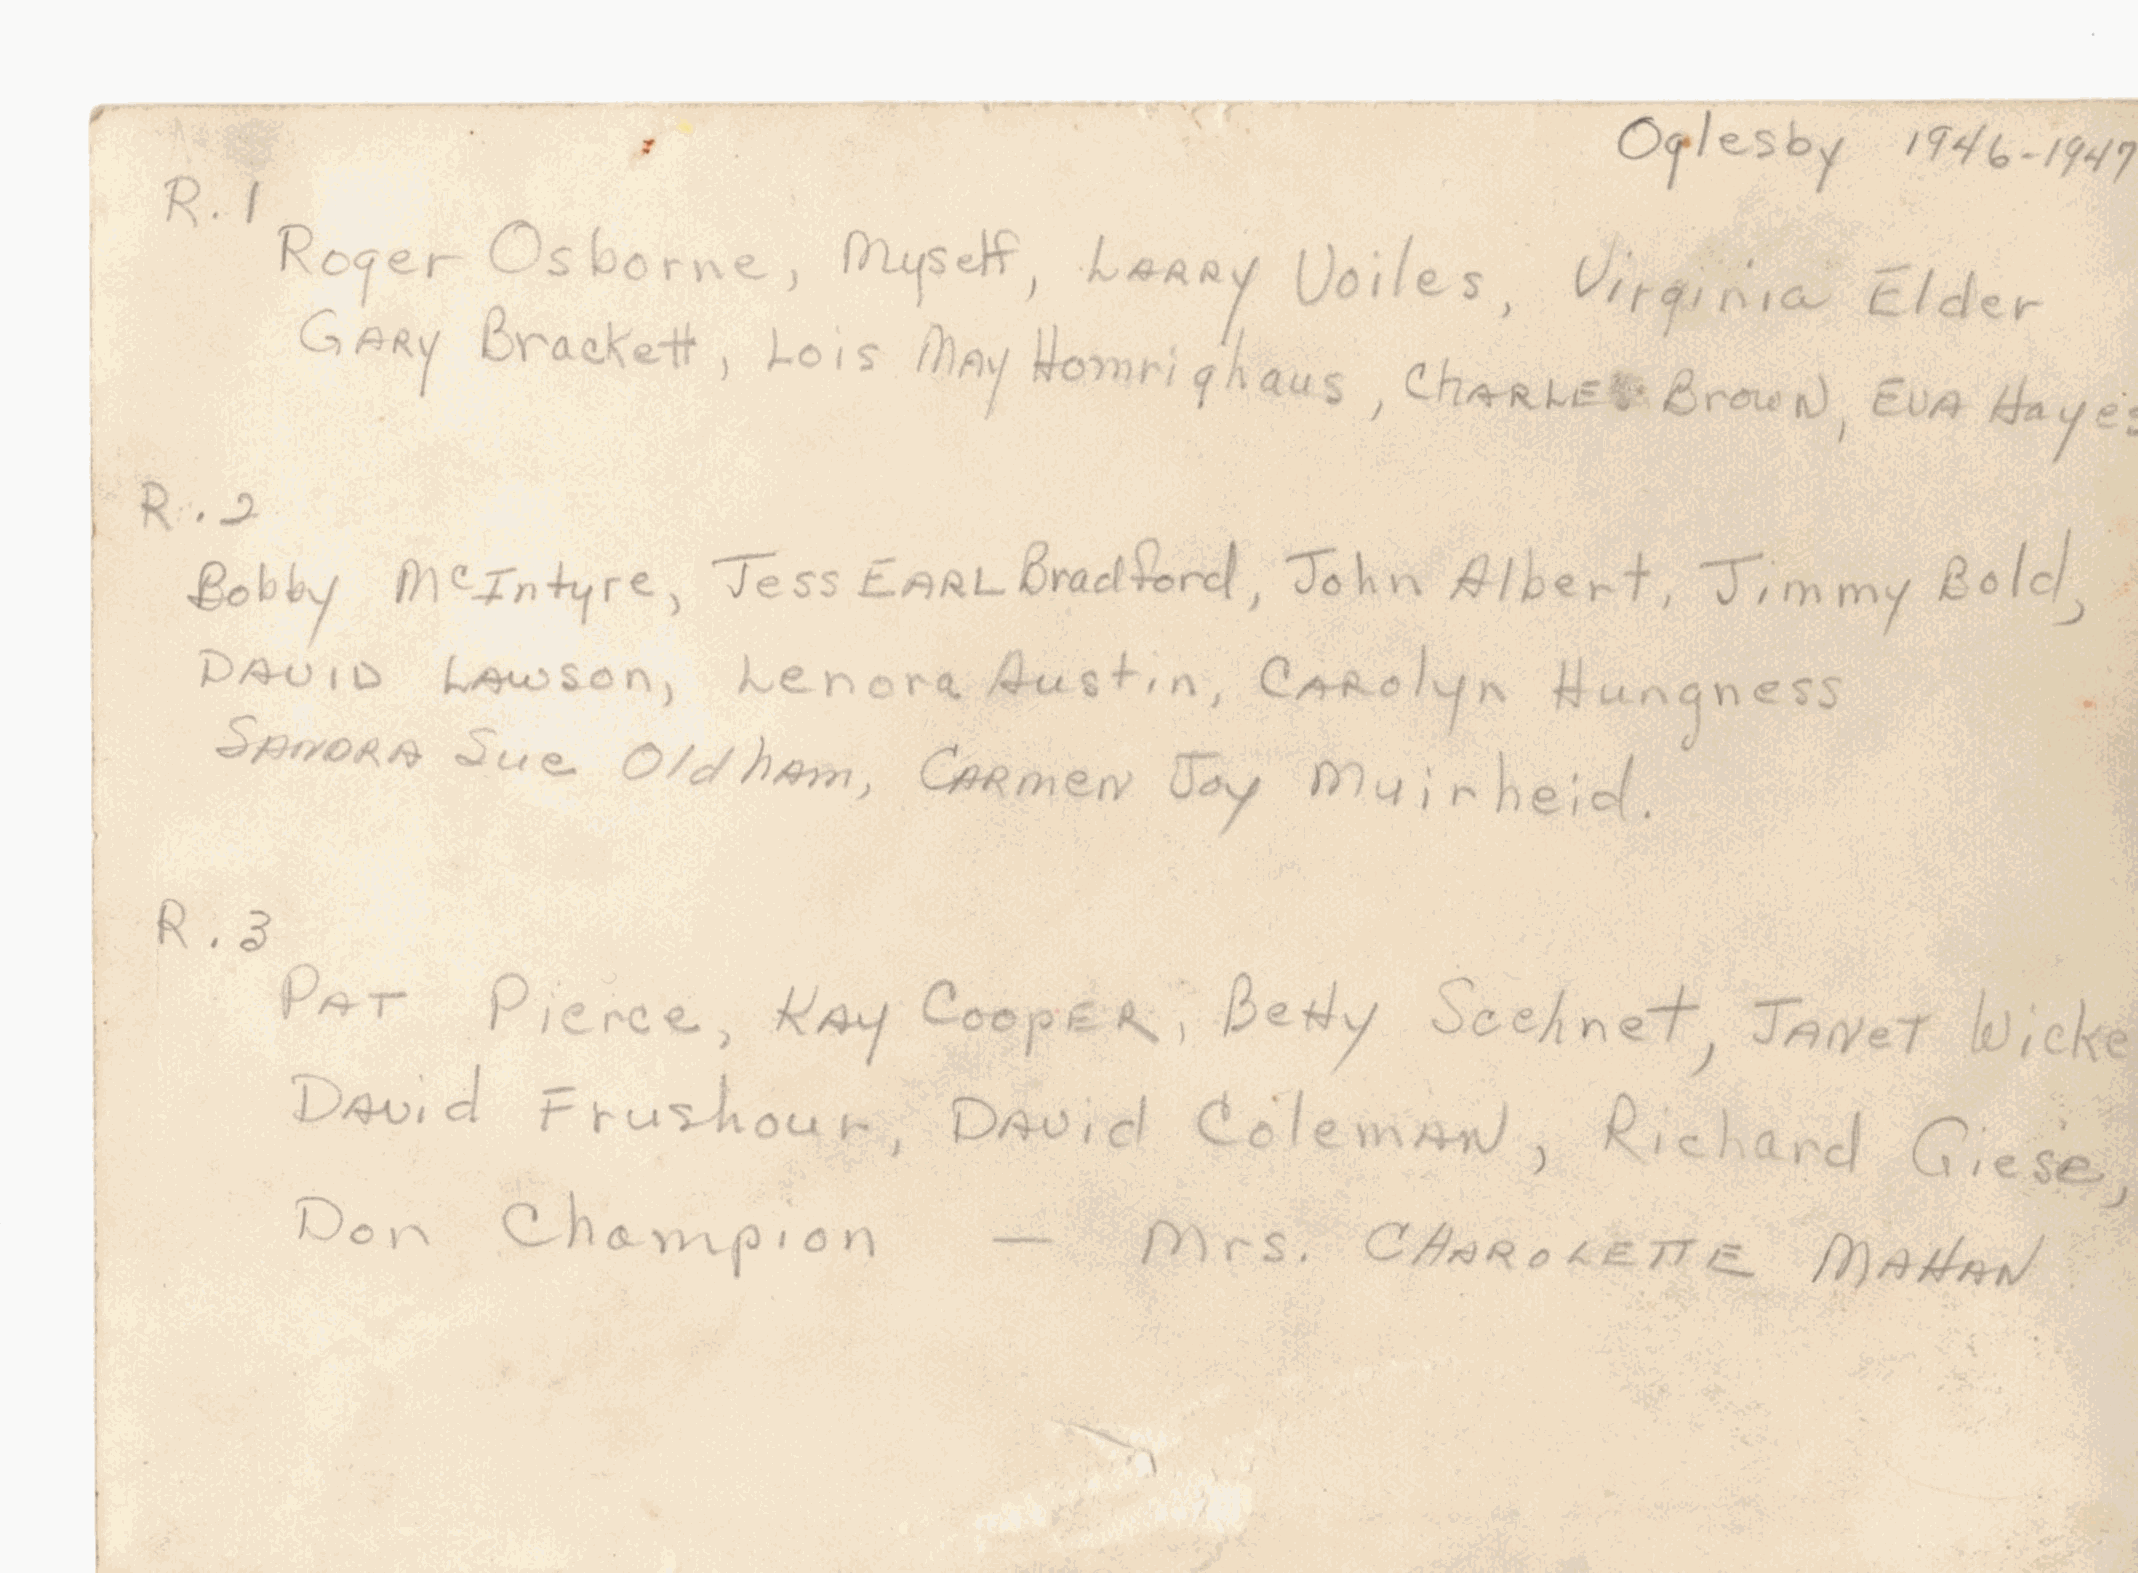 Oglesby 1946-1947
R. 1
Roger Osborne, Myself, LARRY Voiles, Virginia Elder
GARY Brackett, Lois MAY Homrighaus, CHARLES Brown, EVA Hayes
R. 2
Bobby McIntyre, Jess EARL Bradford, John Albert, Jimmy Bold,
DAVID LAWSON, Lenora Austin, CARolyn Hungness
SANDRA Sue OldhAm, CARmeN Joy Muirheid.
R. 3
PAT Pierce, KAY CoopER, Betty Scehnet, JANeT Wicke
DAvid Frushour, DAvid ColemAN, Richard Giese,
Don Champion — Mrs. CHAROLETTE MAHAN